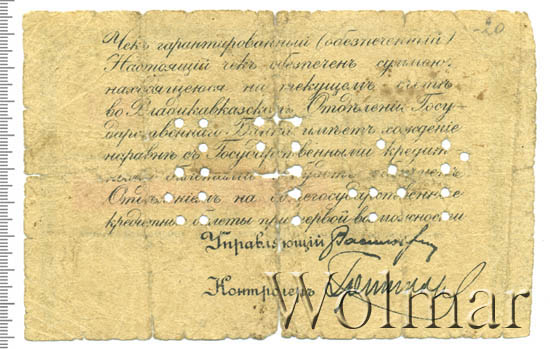 -20
Чекъ гарантированный (обезпеченный)
Настоящій чекъ обезпеченъ суммою,
находящеюся на текущемъ счетѣ
во Владикавказскомъ Отдѣленіи Госу-
дарственнаго Банка имѣетъ хожденіе
наравнѣ съ Государственными кредит-
ными билетами и будетъ обмѣненъ
Отдѣленіемъ на общегосударственные
кредитные билеты при первой возможности
Управляющій
Контролеръ
Wolmar